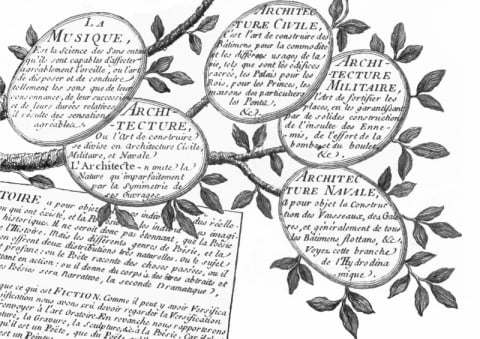 LA
MUSIQUE,
Est la Science des Sons entant
qu'ils sont capables d'affecter
agréablement l'oreille, ou l'art
de disposer et de conduire
tellement les sons que de leur
consonnance, de leur succession
et de leurs durées relatives
il résulte des sensations
agréables.
ARCHITEC-
TURE CIVILE,
C'est l'art de construire des
Bâtimens pour la commodité
et les différens usages de la
vie, tels que sont les édifices
sacrés, les Palais pour les
Rois, pour les Princes, les
maisons des particuliers,
les Ponts,
&c.
ARCHI-
TECTURE
MILITAIRE,
l'Art de fortifier les
places, en les garantissant
par de solides constructions
de l'insulte des Enne-
mis, de l'effort de la
bombe et du boulet,
&c.
ARCHI-
-TECTURE,
Ou l'art de construire
se divise en architecture Civile,
Militaire, et Navale
L'Architecte - n'imite la
Nature qu'imparfaitement
par la Symmetrie de
ses Ouvrages.
ARCHITEC-
TURE NAVALE,
a pour objet la Construc
tion des Vaisseaux, des Gale
res, et généralement de tous
les Bâtimens flottans, &c.
Voyez cette branche
de l'Hydrodina
mique.
TOIRE a pour objet les individus réelle-
qui ont existé, et la Poésie les individus imagi-
historique. Il ne seroit donc pas étonnant, que la Poésie
l'Histoire. Mais les différents genres de Poésie, et la
en offrent deux distributions très naturelles, ou le sujet
profane: ou le Poëte raconte des choses passées, ou il
tant en action: ou il donne du corps à des êtres abstraits et
Poésies sera Narrative, la seconde Dramatique,
que ce qui est FICTION. Comme il peut y avoir Versifica
sification nous avons crû devoir regarder la Versification
renvoyer à l'art Oratoire. En revanche nous rapporterons
ture, la Gravure, la Sculpture, &c. à la Poésie,
qu'il est un Poëte,
est un Peintre, que du Poëte